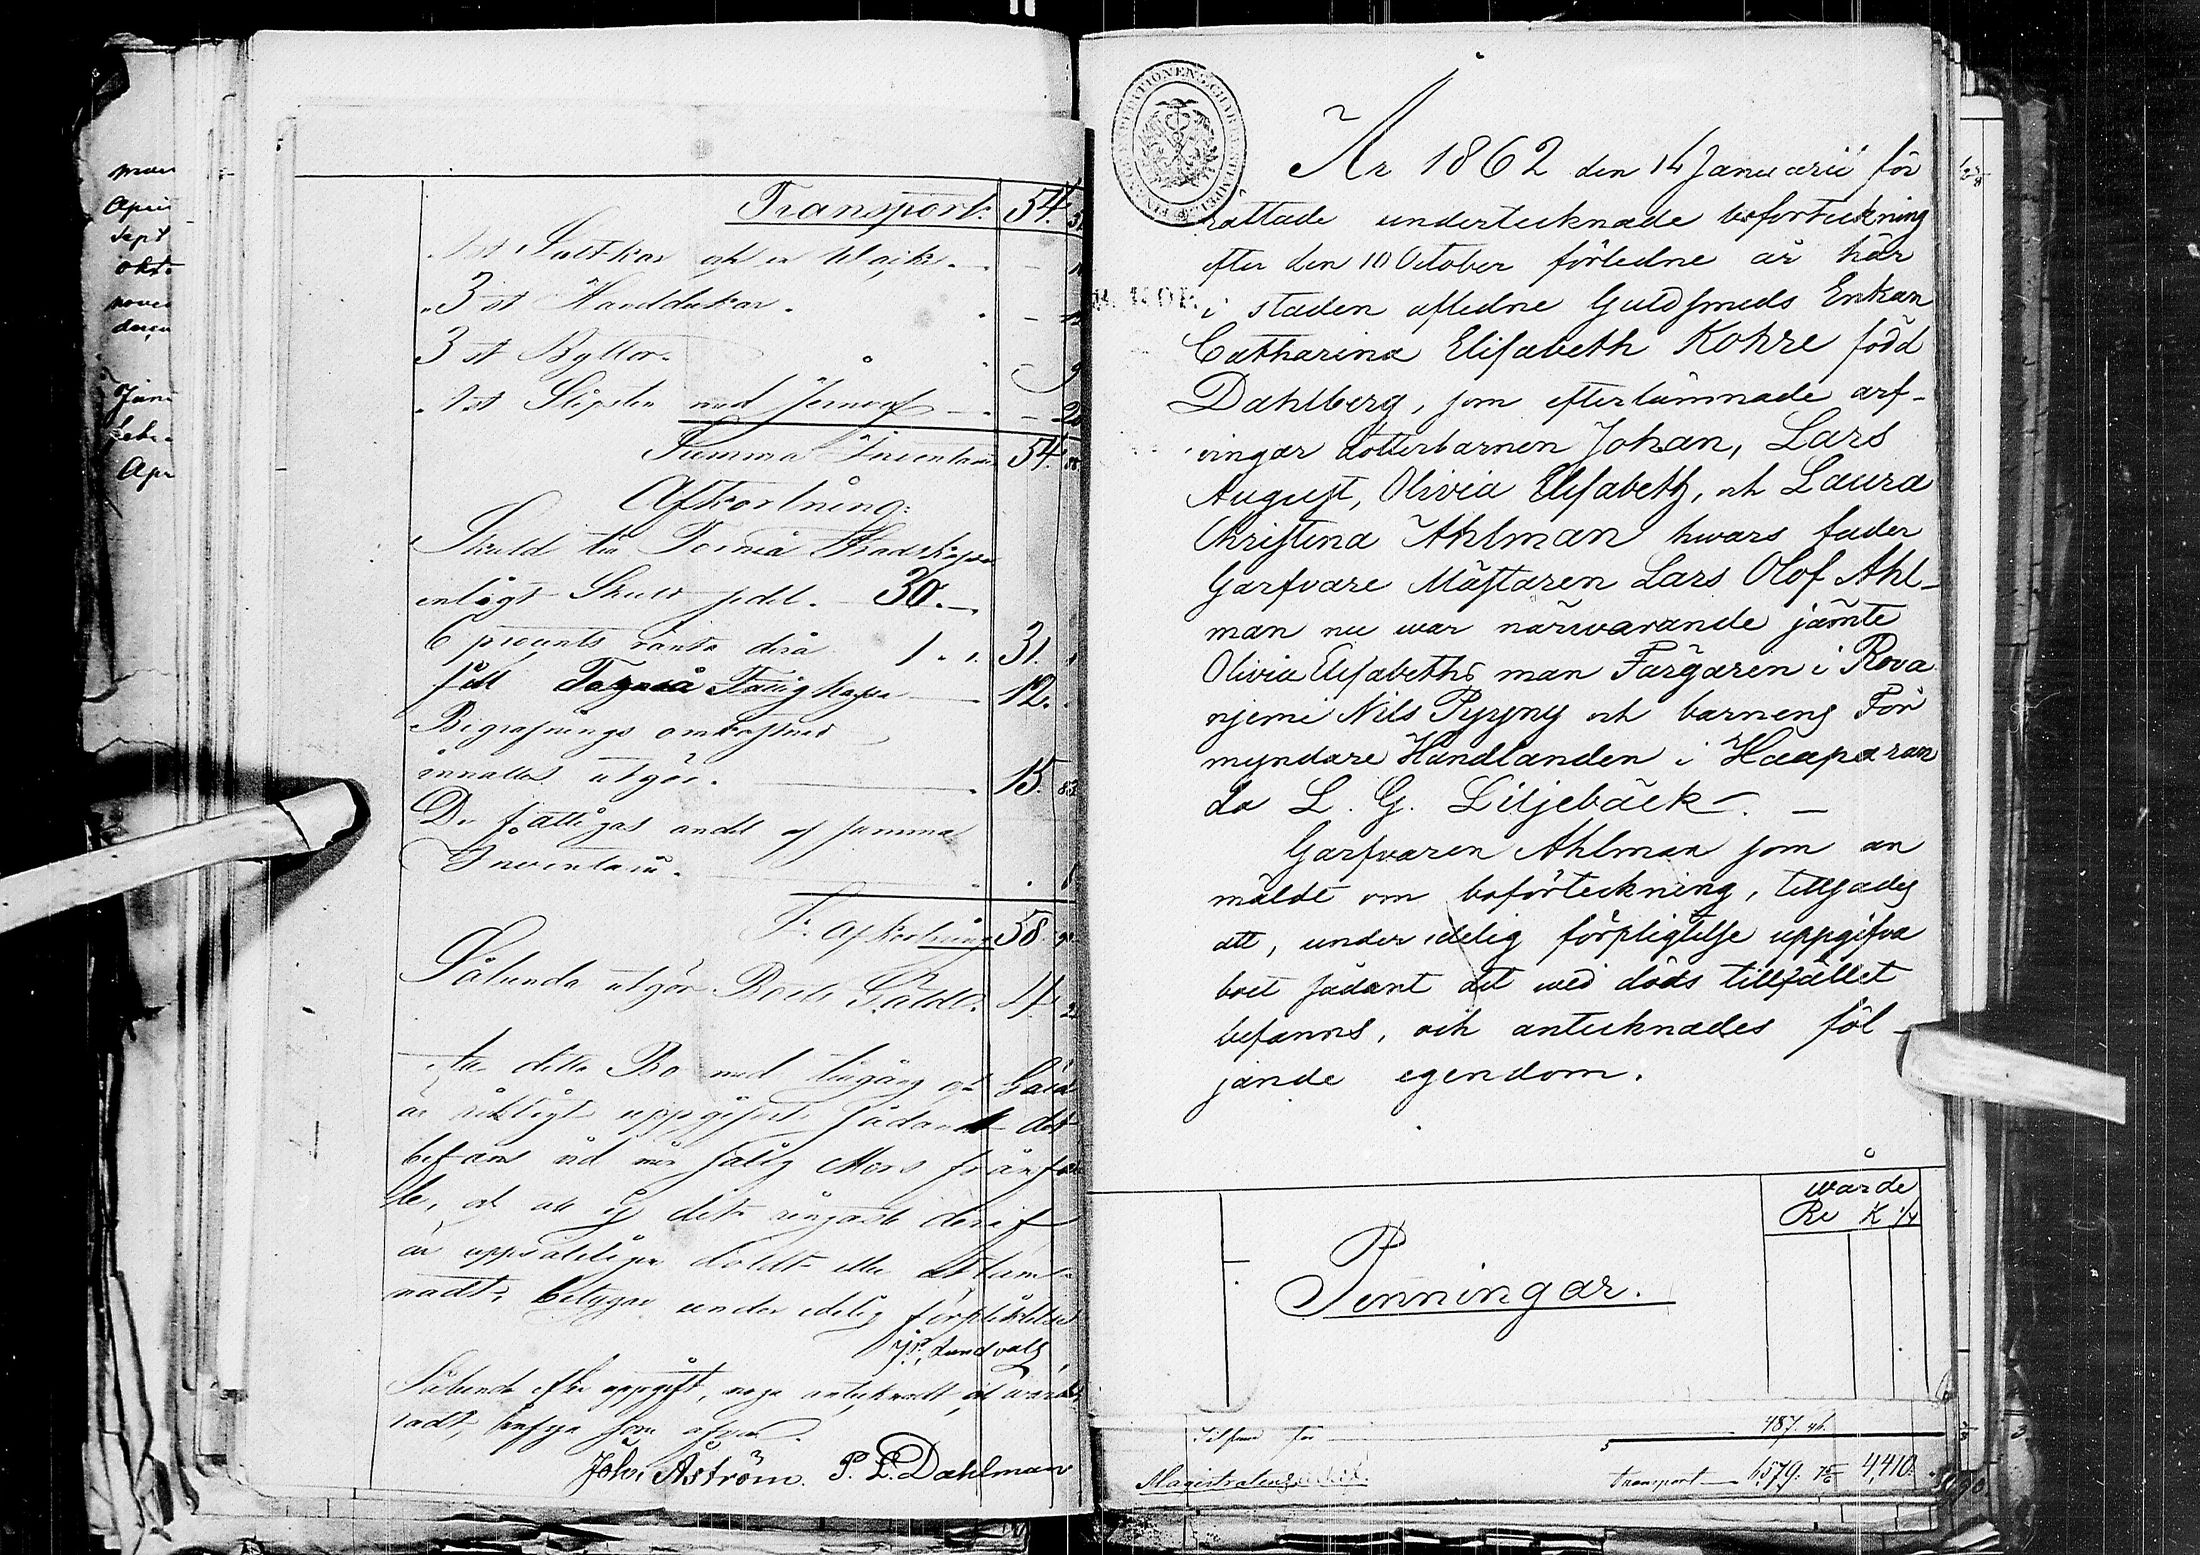 Transport: 54.
1 st Saltkar och en
3 st Handdukar.
3 st Byttor.
1 st Slipsten med
Summa Inventarii 54.
Afkortning:
Skuld till Torneå
enligt Skuld sedel. 30.
6 procents ränta derå 1. 1. 31.
Till Torneå 12.
Begrafnings omkostnad
utgör. 15. 83
De fattigas andel af samma
Inventarii.
S:a afkortning 58.
Sålunda utgör Boets Gäld. 4
Att detta Bo med tillgång och Gäld
är riktigt uppgifvit sådant det
befans vid min salig Mors frånfäl
le, och att ej det ringaste deraf
är uppsåteligen doldt eller
nadt, betygar under edelig förpliktelse
Sålunda efter uppgift, noga antecknadt och värde
radt, betyga som ofvan
Joh. Åström. P. L. Dahlman
År 1862 den 14 Januarii för
rättade undertecknade boförteckning
efter den 10 October förledne år här
i staden aflidne Guldsmeds Enkan
Catharina Elisabeth Kohre född
Dahlberg, som efterlämnade arf-
vingar dotterbarnen Johan, Lars
August, Olivia Elisabeth, och Laura
Christina Ahlman hwars fader
Garfvare Mästaren Lars Olof Ahl-
man nu war närwarande jämte
Olivia Elisabeths man Färgaren i Rova
njemi Nils Pyyny och barnens För
myndare Handlanden i Haaparan
da L. G. Liljebäck. —
Garfvaren Ahlman som an
mält om boförteckning, tillsades
att, under edelig förpligtelse uppgifva
boet sådant det wid döds tillfället
befanns, och antecknades föl-
jande egendom.
wärde
Re K 1/4
Penningar.
487. 46.
Magistratens
transport 6579. 4,410.